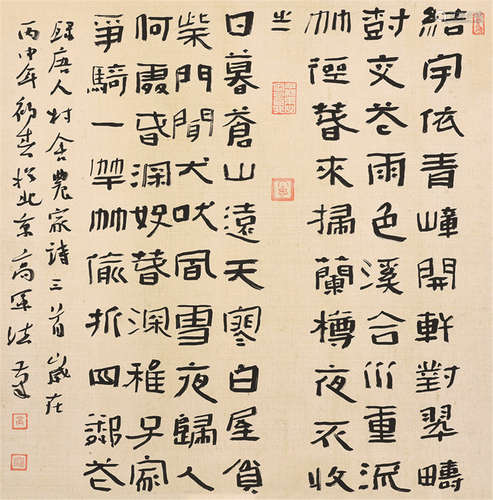 結宇依青嶂開軒對翠疇
樹交花雨色溪合水重流
竹徑春來掃蘭樽夜不收
日暮蒼山遠天寒白屋貧
柴門聞犬吠風雪夜歸人
何處春深好春深稚子家
爭騎一竿竹偷折四鄰花
錄唐人村舍農家詩三首歲在
丙申年初春於北京高軍法書